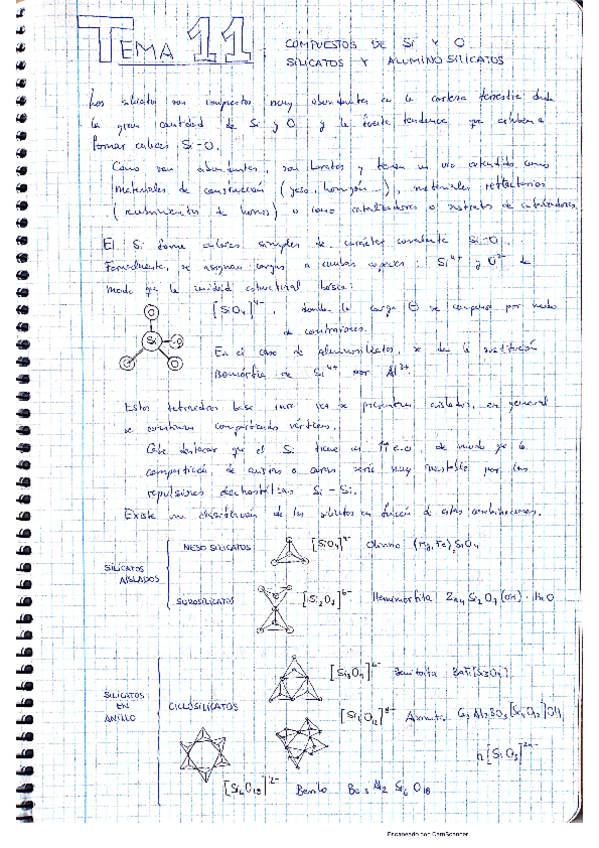 TEMA 11: COMPUESTOS DE Si Y O
SILICATOS Y ALUMINOSILICATOS
Los silicatos son compuestos muy abundantes en la corteza terrestre dada
la gran cantidad de Si y O y la fuerte tendencia que exhiben a
formar enlaces Si-O.
Como son abundantes, son baratos y tienen un uso extendido como
materiales de construcción (yeso, hormigón...), materiales refractarios
(recubrimientos de hornos) o como catalizadores o sustratos de catalizadores.
El Si forma enlaces simples de carácter covalente Si-O.
Formalmente, se asignan cargas a ambas especies: Si4+ y O2- de
modo que la unidad estructural básica:
[SiO4]4-, donde la carga ⊖ se compensa por medio
de contraiones.
En el caso de aluminosilicatos, se da la sustitución
isomórfica de Si4+ por Al3+
Estos tetraedros base rara vez se presentan aislados, en general
se combinan compartiendo vértices.
Cabe destacar que el Si tiene un e.o, de modo que la
compartición de aristas o caras sería muy inestable por las
repulsiones electrostáticas Si-Si.
Existe una clasificación de los silicatos en función de estas combinaciones.
SILICATOS
AISLADOS
NESOSILICATOS [SiO4]4- Olivino (Mg, Fe)2SiO4
SOROSILICATOS [Si2O7]6- Hemimorfita Zn4 Si2O7(OH)·H2O
SILICATOS
EN
ANILLO
CICLOSILICATOS
[Si3O9]6- Benitoita BaTi[Si3O9]
[Si4O12]8- Axinita Al2BO3[Si4O12]OH
n[SiO3]2n-
[Si6O18]12- Berilo Be3Al2Si6O18
Escaneado con CamScanner